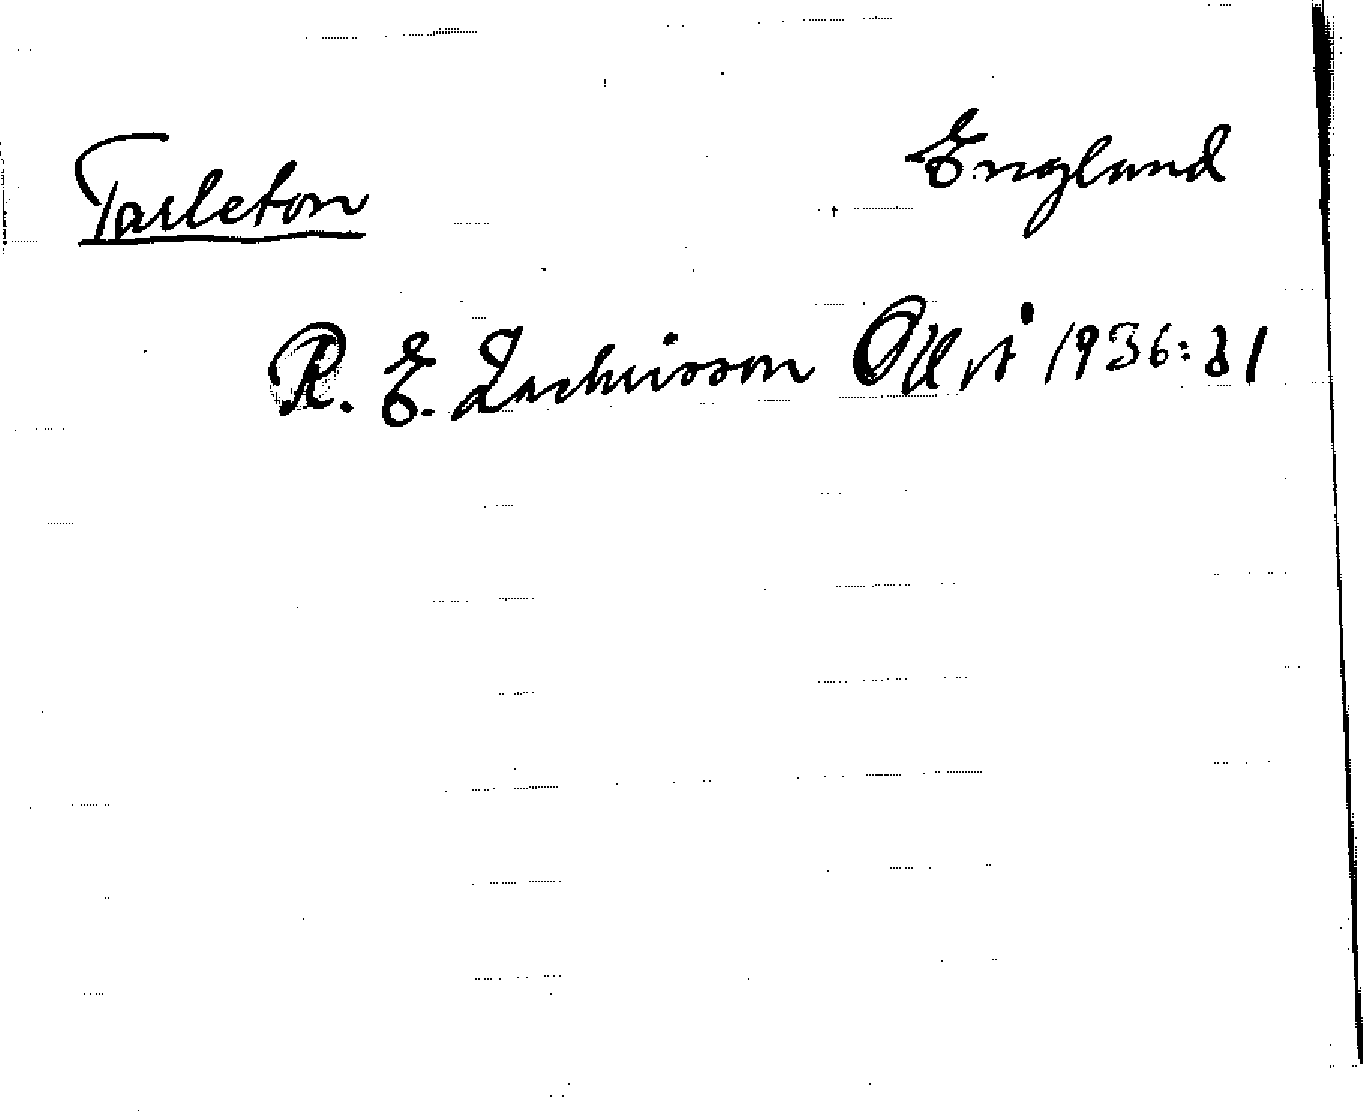 Tarleton England
R. E. Zachrisson 1936: 21